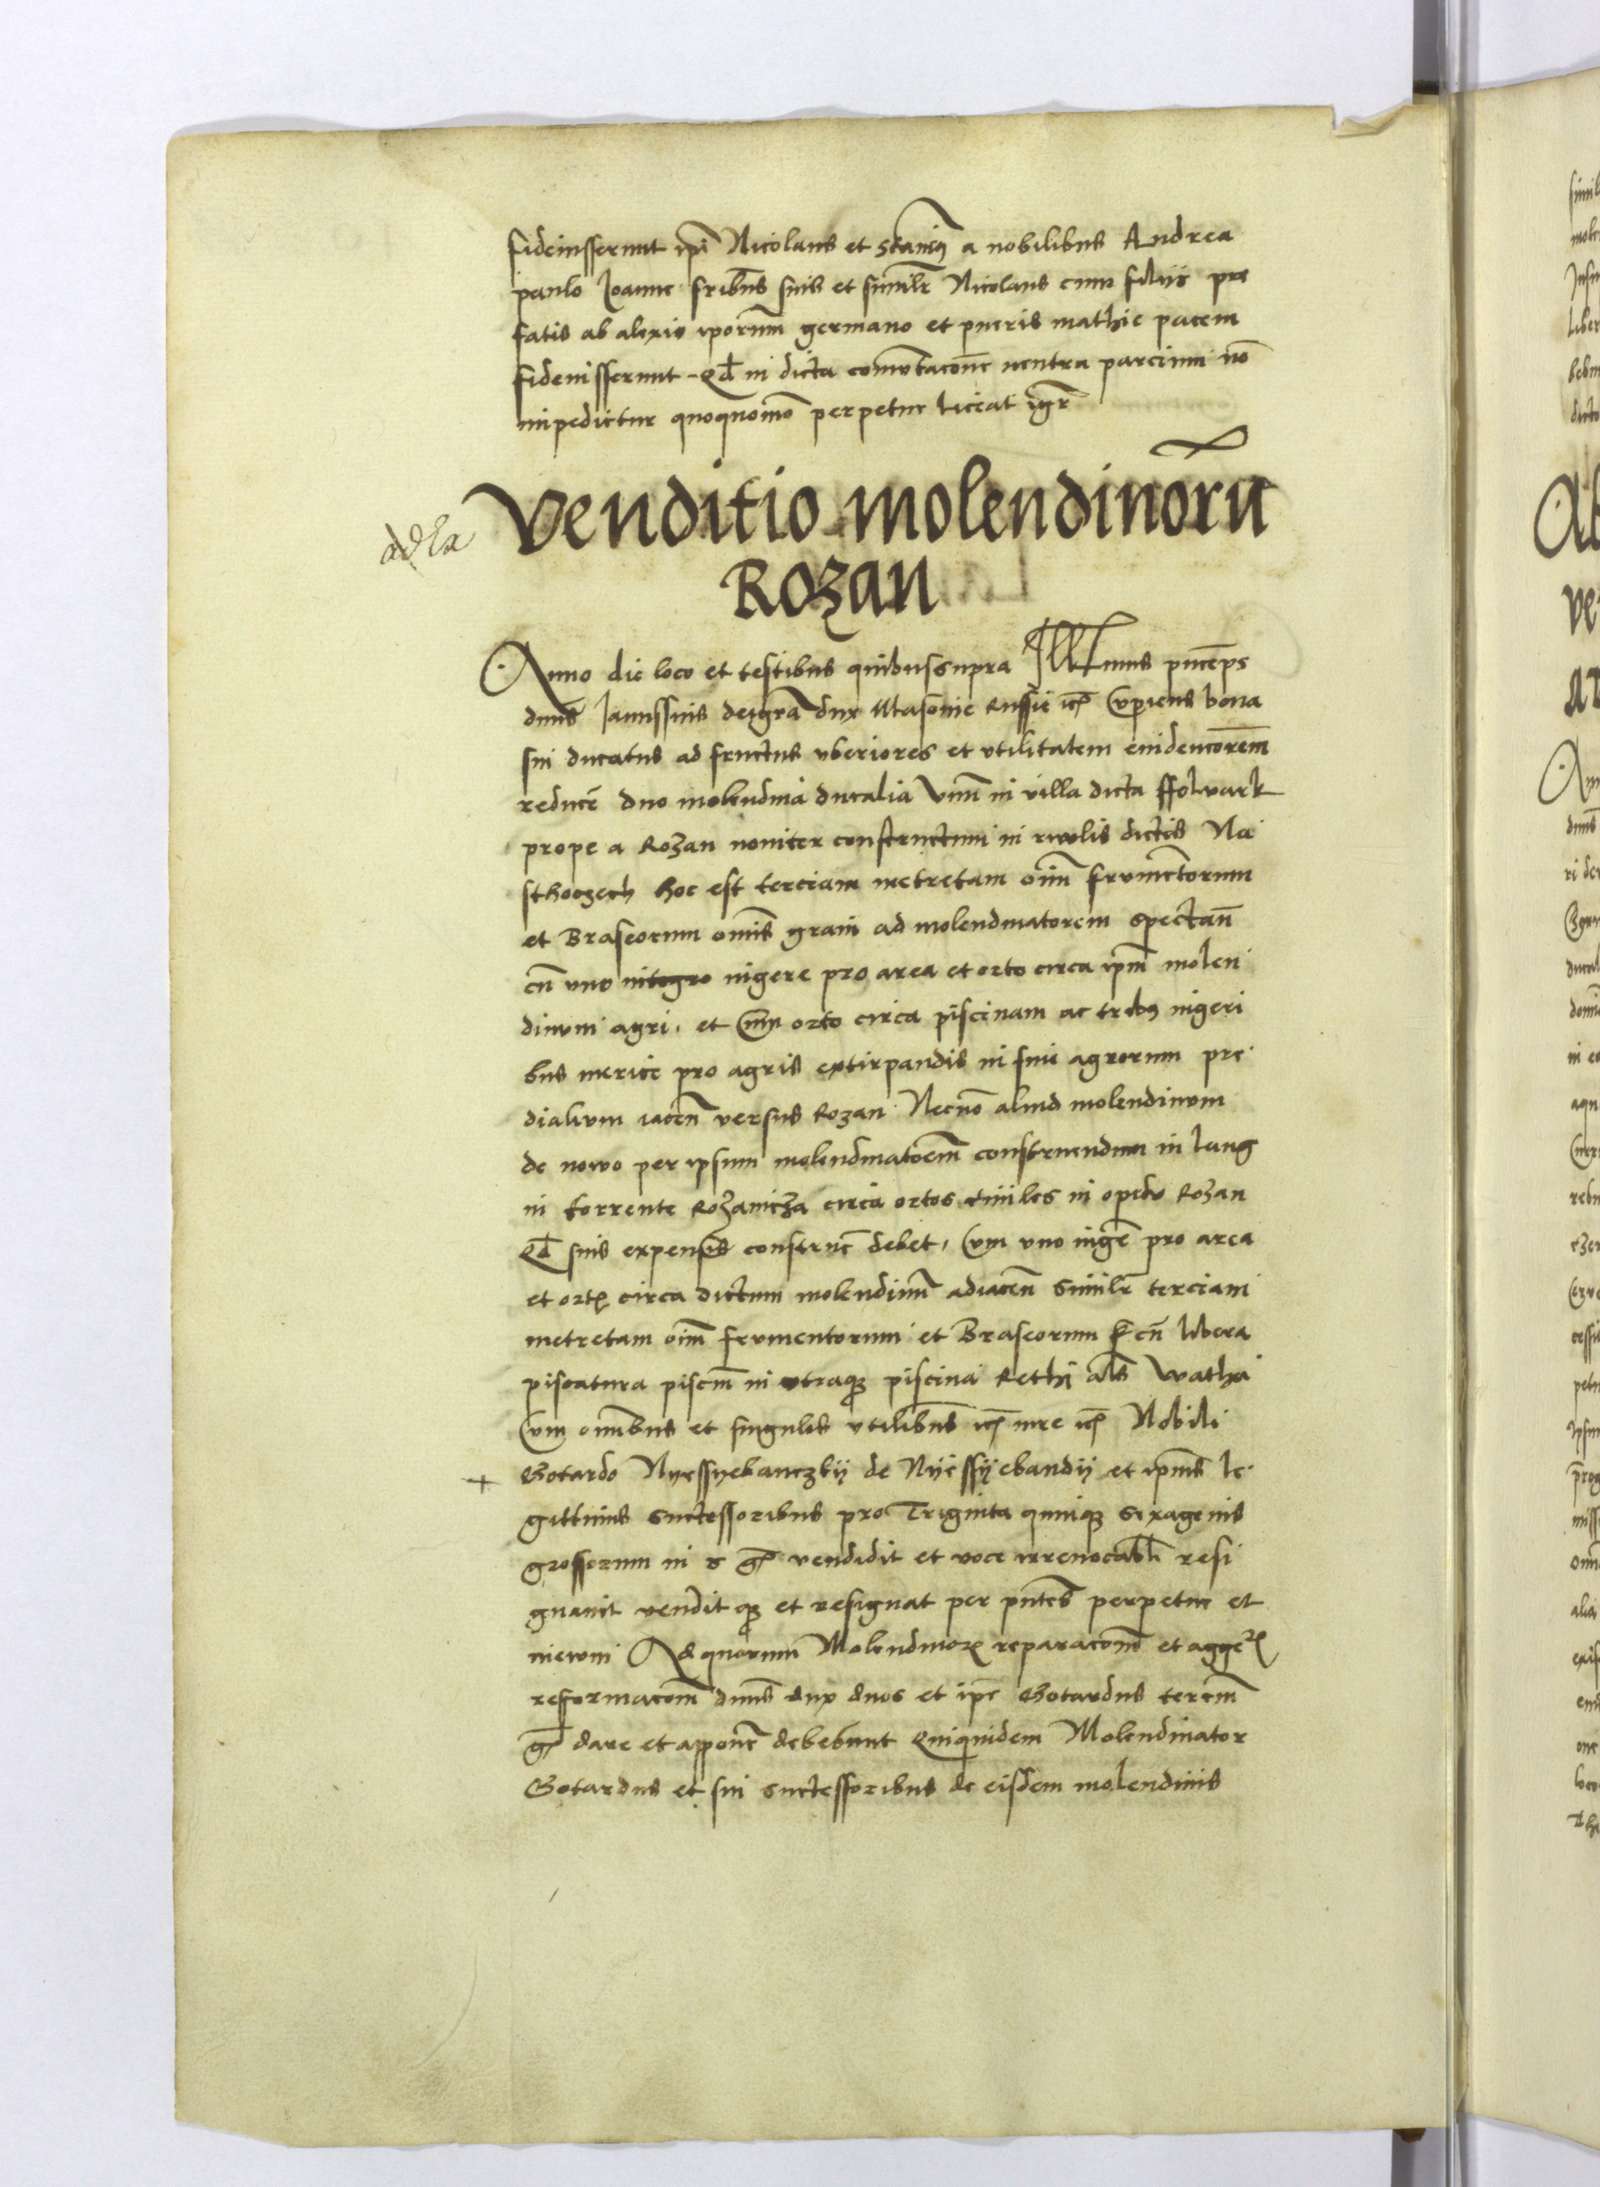 fideiusserunt ipi Nicolaus et Stanis9 a nobilibus Andrea
paulo Joanne fribus suis et similr Nicolaus cum filiis pre
fatis ab alexio iporum germano et pueris mathie pacem
fideiusserunt Qd in dicta comutacone neutra parcium no
impedietur quoquomo perpetue liceat igr
Venditio molendinoru
Rozan
Anno die loco et testibus quibussupra Illmus princeps
dnus Janussius deigra dux Masouie Russie etc Cupiens bona
sui ducatus ad fructus vberiores et vtilitatem euidenciorem
reducere duo molendina ducalia Vnu in villa dicta ffolvark
prope a Rozan nouiter constructum in riuolis dictis Na
sthoczech hoc est terciam metretam oim frumentorum
et Braseorum omis grani ad molendinatorem spectan
cu vno integro iugere pro area et orto circa ipm molen
dinum agri. et cum orto circa piscinam ac trib9 iugeri
bus merice pro agris extirpandis in fine agrorum pre
dialium iacen versus Rozan Necno aliud molendinum
de nowo per ipsum molendinatorem construendum in lang
in torrente Rozanicza circa ortos ciuiles in opido Rozan
Qd suis expensis construe debet, Cum vno iugere pro area
et orto circa dictum molendinu adiacen Similr terciam
metretam oim frumentorum et Braseorum cu libera
piscatura pisciu in vtraq piscina Rethi als Watha
Cum omnibus et singulis vtilibus etc iure etc Nobili
+ Gotardo Nyessyebanczkij de Nijessijebandij et ipius le
gittimis successoribus pro Triginta quinq sexagenis
grossorum in s g vendidit et voce irreuocabli resi
gnauit venditq et resignat per pntes perpetue et
in ewm Ad quorum Molendinor reparacone et agger
reformacom dnus dux duos et ipe Gotardus terciu
g dare et apponere debebunt Quiquidem Molendinator
Gotardus et sui successoribus de eisdem molendinis